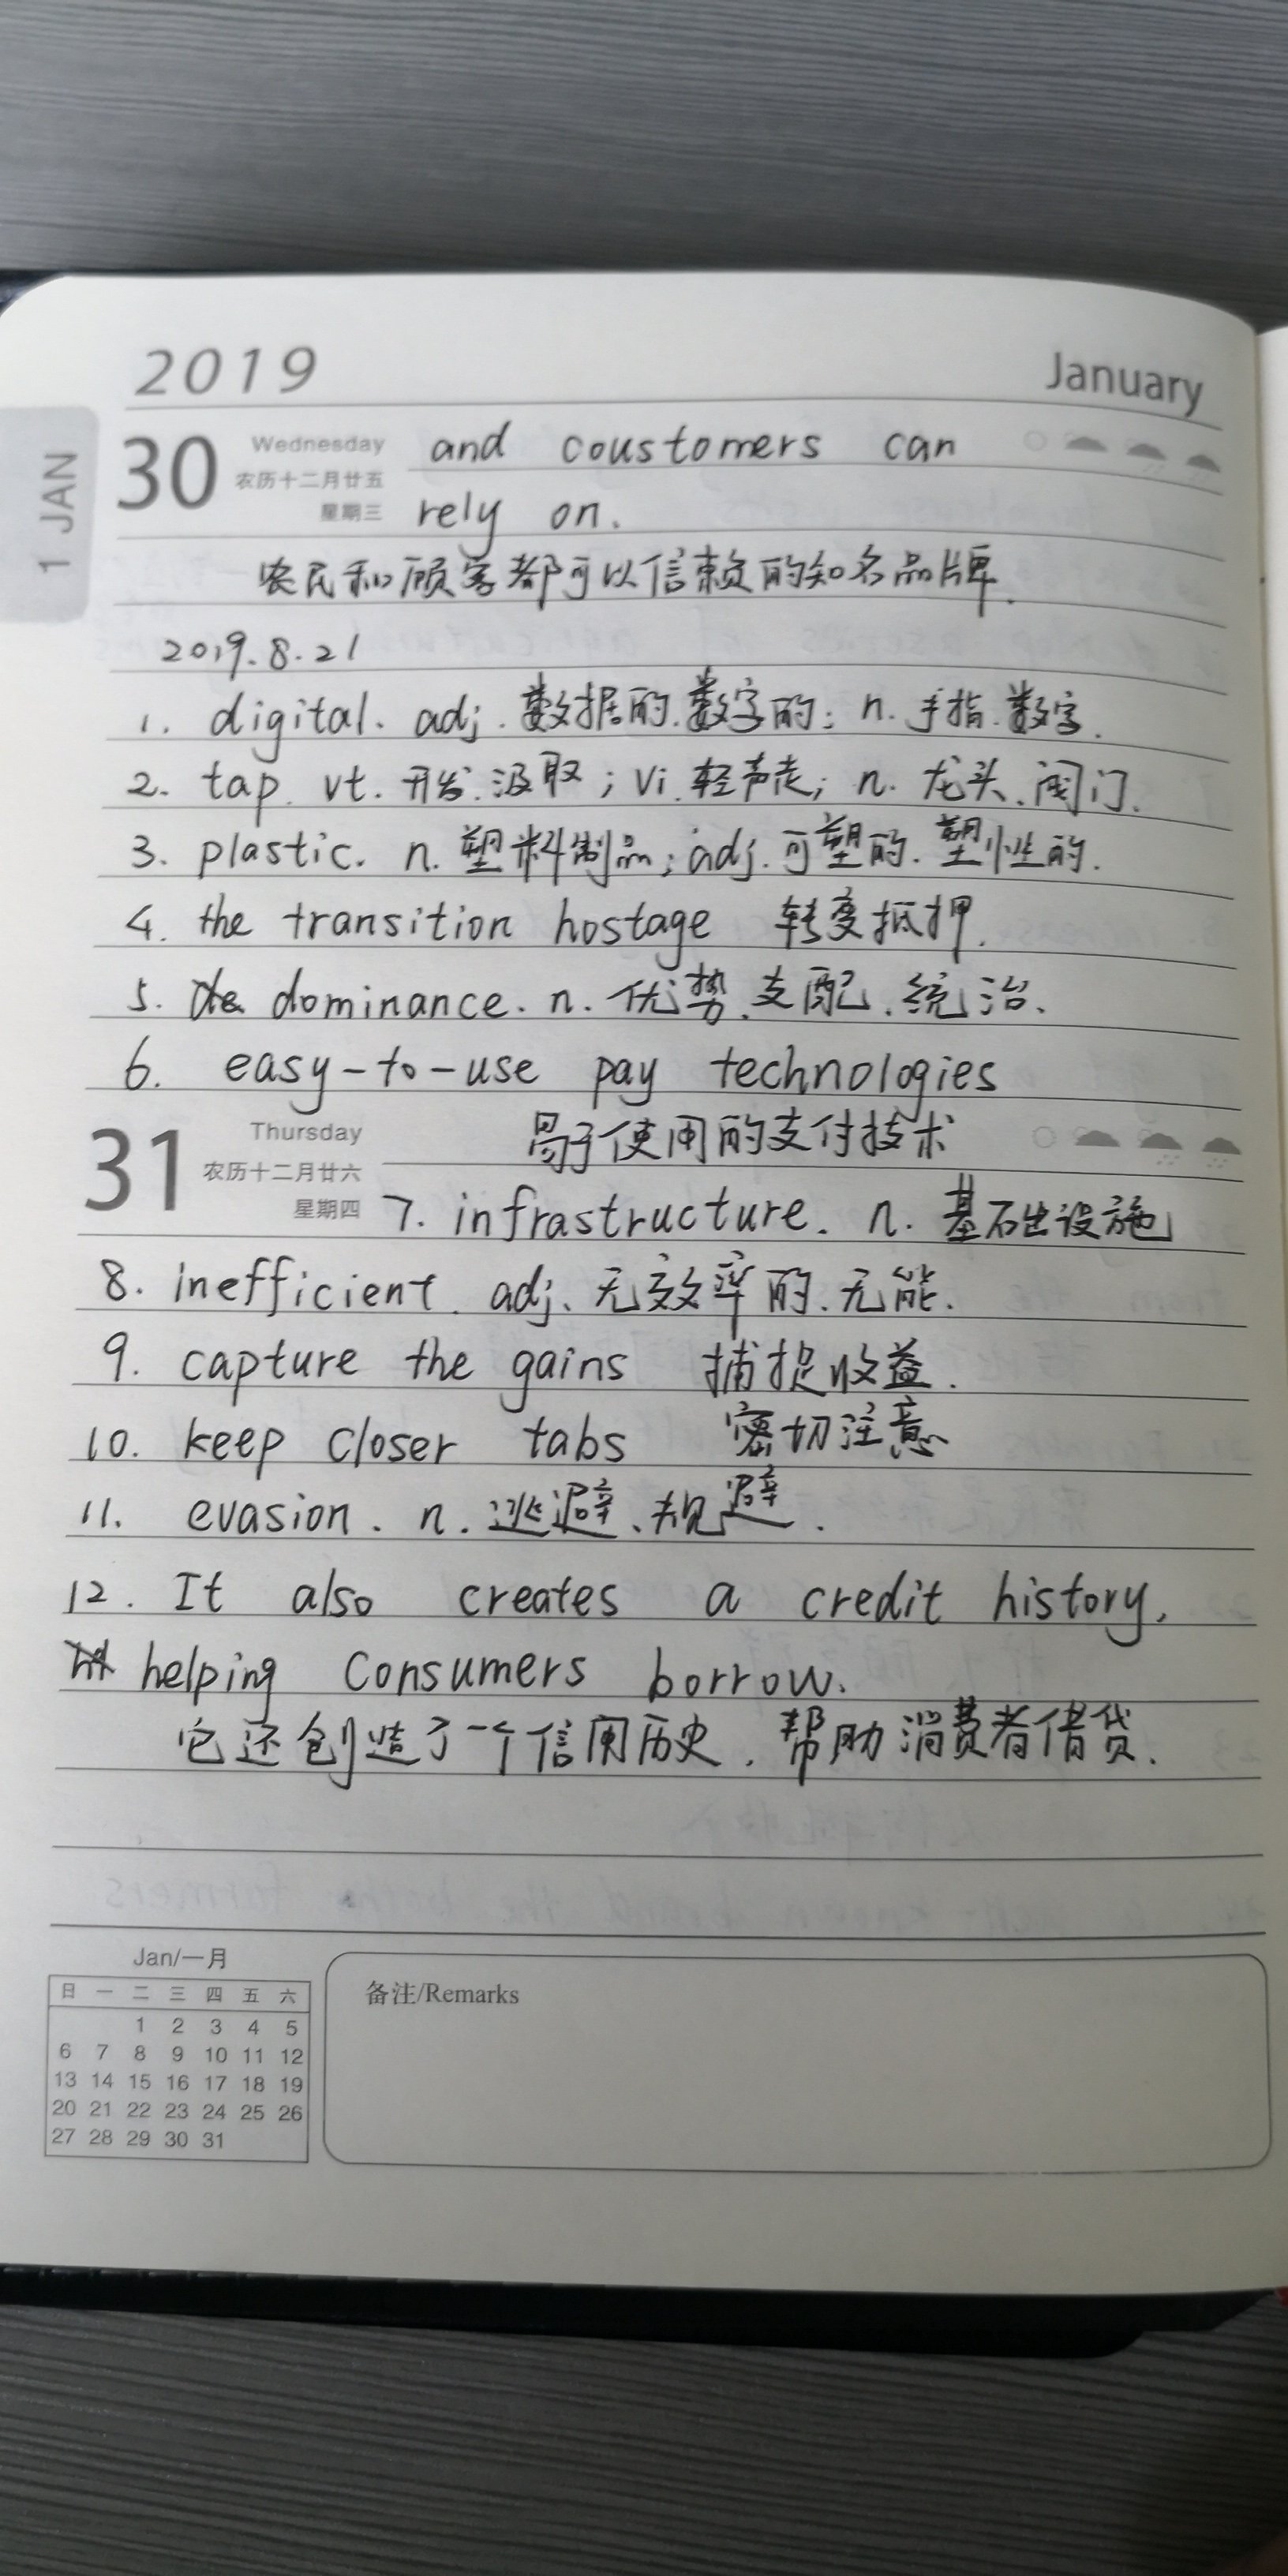 2019 January
1 JAN
30 Wednesday and coustomers can
农历十二月廿五
星期三 rely on.
农民和顾客都可以信赖的知名品牌.
2019.8.21
1. digital. adj. 数据的.数字的; n. 手指.数字.
2. tap. vt. 开发.汲取; vi.轻声走; n. 龙头.阀门.
3. plastic. n. 塑料制品; adj. 可塑的. 塑性的.
4. the transition hostage 转变抵押.
5. dominance. n. 优势.支配.统治.
6. easy-to-use pay technologies
31 Thursday 易于使用的支付技术
农历十二月廿六
星期四 7. infrastructure. n. 基础设施
8. inefficient. adj. 无效率的.无能.
9. capture the gains 捕捉收益.
10. keep closer tabs 密切注意
11. evasion. n. 逃避、规避.
12. It also creates a credit history,
helping consumers borrow.
它还创造了一个信用历史,帮助消费者借贷.
Jan/一月
日 一 二 三 四 五 六
1 2 3 4 5
6 7 8 9 10 11 12
13 14 15 16 17 18 19
20 21 22 23 24 25 26
27 28 29 30 31
备注/Remarks